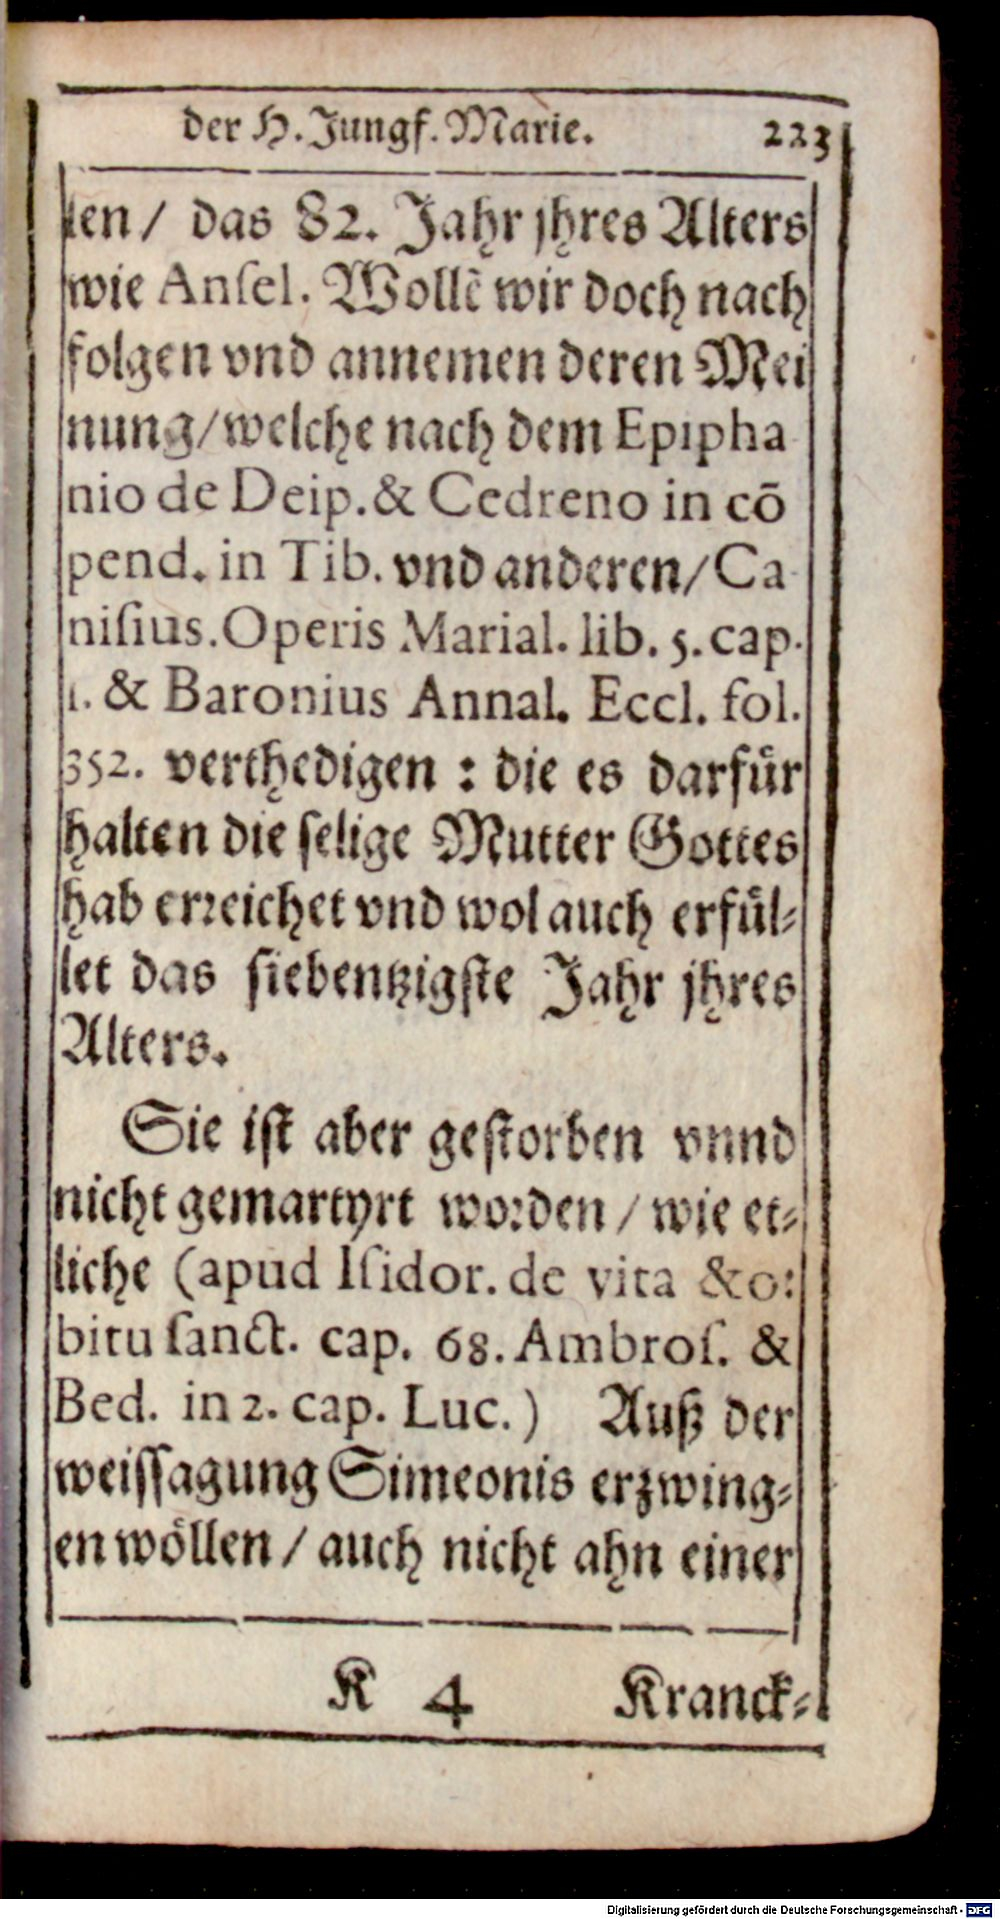 der H. Jungf. Marie. 223
len / das 82. Jahr jhres Alters
wie Anſel. Wollẽ wir doch nach
folgen vnd annemen deren Mei
nung / welche nach dem Epipha
nio de Deip. & Cedreno in cō
pend. in Tib. vnd anderen / Ca
niſius. Operis Marial. lib. 5. cap.
1. & Baronius Annal. Eccl. fol.
352. verthedigen : die es darfuͤr
halten die ſelige Mutter Gottes
hab erꝛeichet vnd wol auch erfuͤl⸗
let das ſiebentzigſte Jahr jhres
Alters.
Sie iſt aber geſtorben vnnd
nicht gemartyrt woꝛden / wie et⸗
liche (apud Iſidor. de vita & o:
bitu ſanct. cap. 68. Ambroſ. &
Bed. in 2. cap. Luc.) Auß der
weiſſagung Simeonis erzwing⸗
en woͤllen / auch nicht ahn einer
K 4 Kranck⸗
Digitalisierung gefördert durch die Deutsche Forschungsgemeinschaft - DFG